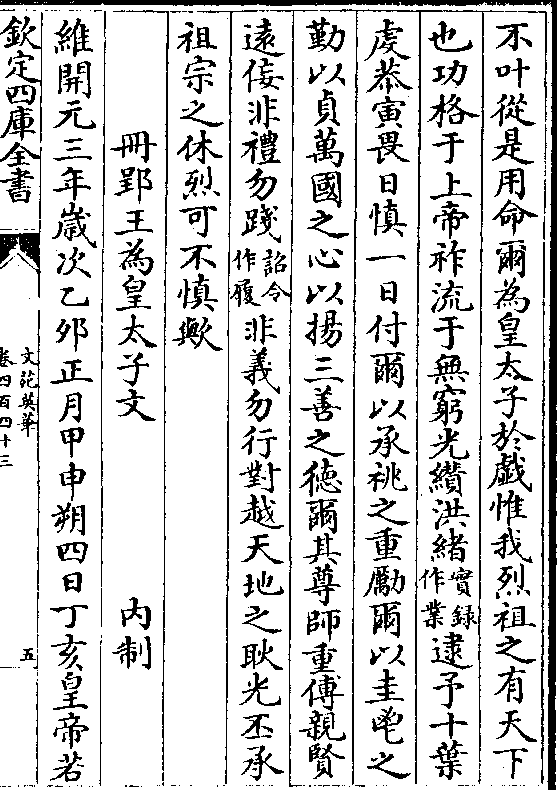 不叶從是用命爾為皇太子於戲惟我烈祖之有天下
也功格于上帝祚流于無窮光纘洪緒實録作業逮予十葉
虔恭寅畏日慎一日付爾以承祧之重勵爾以圭鬯之
勤以貞萬國之心以揚三善之德爾其尊師重傅親賢
遠佞非禮勿踐詔令作履非義勿行對越天地之耿光丕承
祖宗之休烈可不慎歟
冊郢王為皇太子文 内制
維開元三年歲次乙夘正月甲申朔四日丁亥皇帝若
欽定四庫全書
文苑英華
卷四百四十三
五